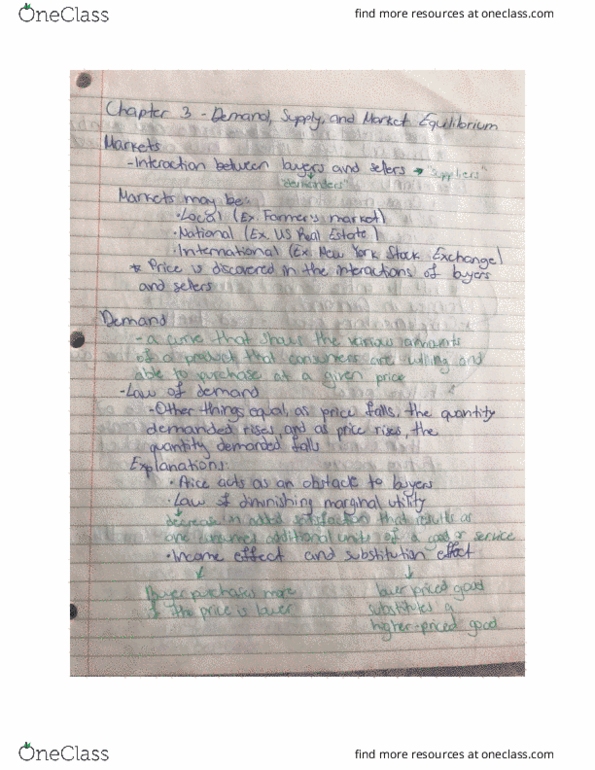 OneClass
find more resources at oneclass.com
Chapter 3 - Demand, Supply, and Market Equilibrium
Markets
-Interaction between buyers and sellers → "suppliers"
"demanders"
Markets may be:
• Local (Ex. Farmer's market)
• National (Ex. US Real Estate)
• International (Ex. New York Stock Exchange)
* Price is discovered in the interactions of buyers
and sellers
Demand
- a curve that shows the various amounts
of a product that consumers are willing and
able to purchase at a given price
-Law of demand
-Other things equal, as price falls, the quantity
demanded rises, and as price rises, the
quantity demanded falls
Explanations:
• Price acts as an obstacle to buyers
• Law of diminishing marginal utility
decrease in added satisfaction that results as
one consumes additional units of a good or service
• Income effect and substitution effect
buyer purchases more
if the price is lower
lower priced good
substitutes a
higher-priced good
OneClass
find more resources at oneclass.com